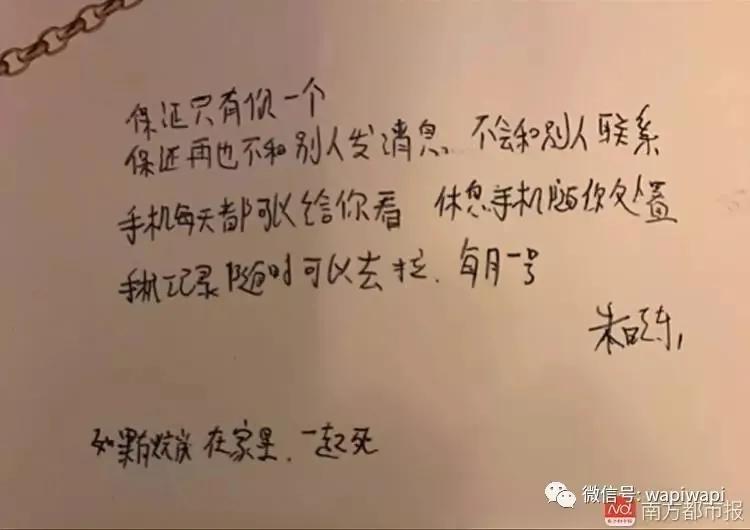 保证只有你一个
保证再也不和别人发消息 不会和别人联系
手机每天都可以给你看 休息手机随你处置
手机记录随时可以去拉、每月一号
朱晓东
如果有 在家里、一起死
微信号: wapiwapi
南方都市报